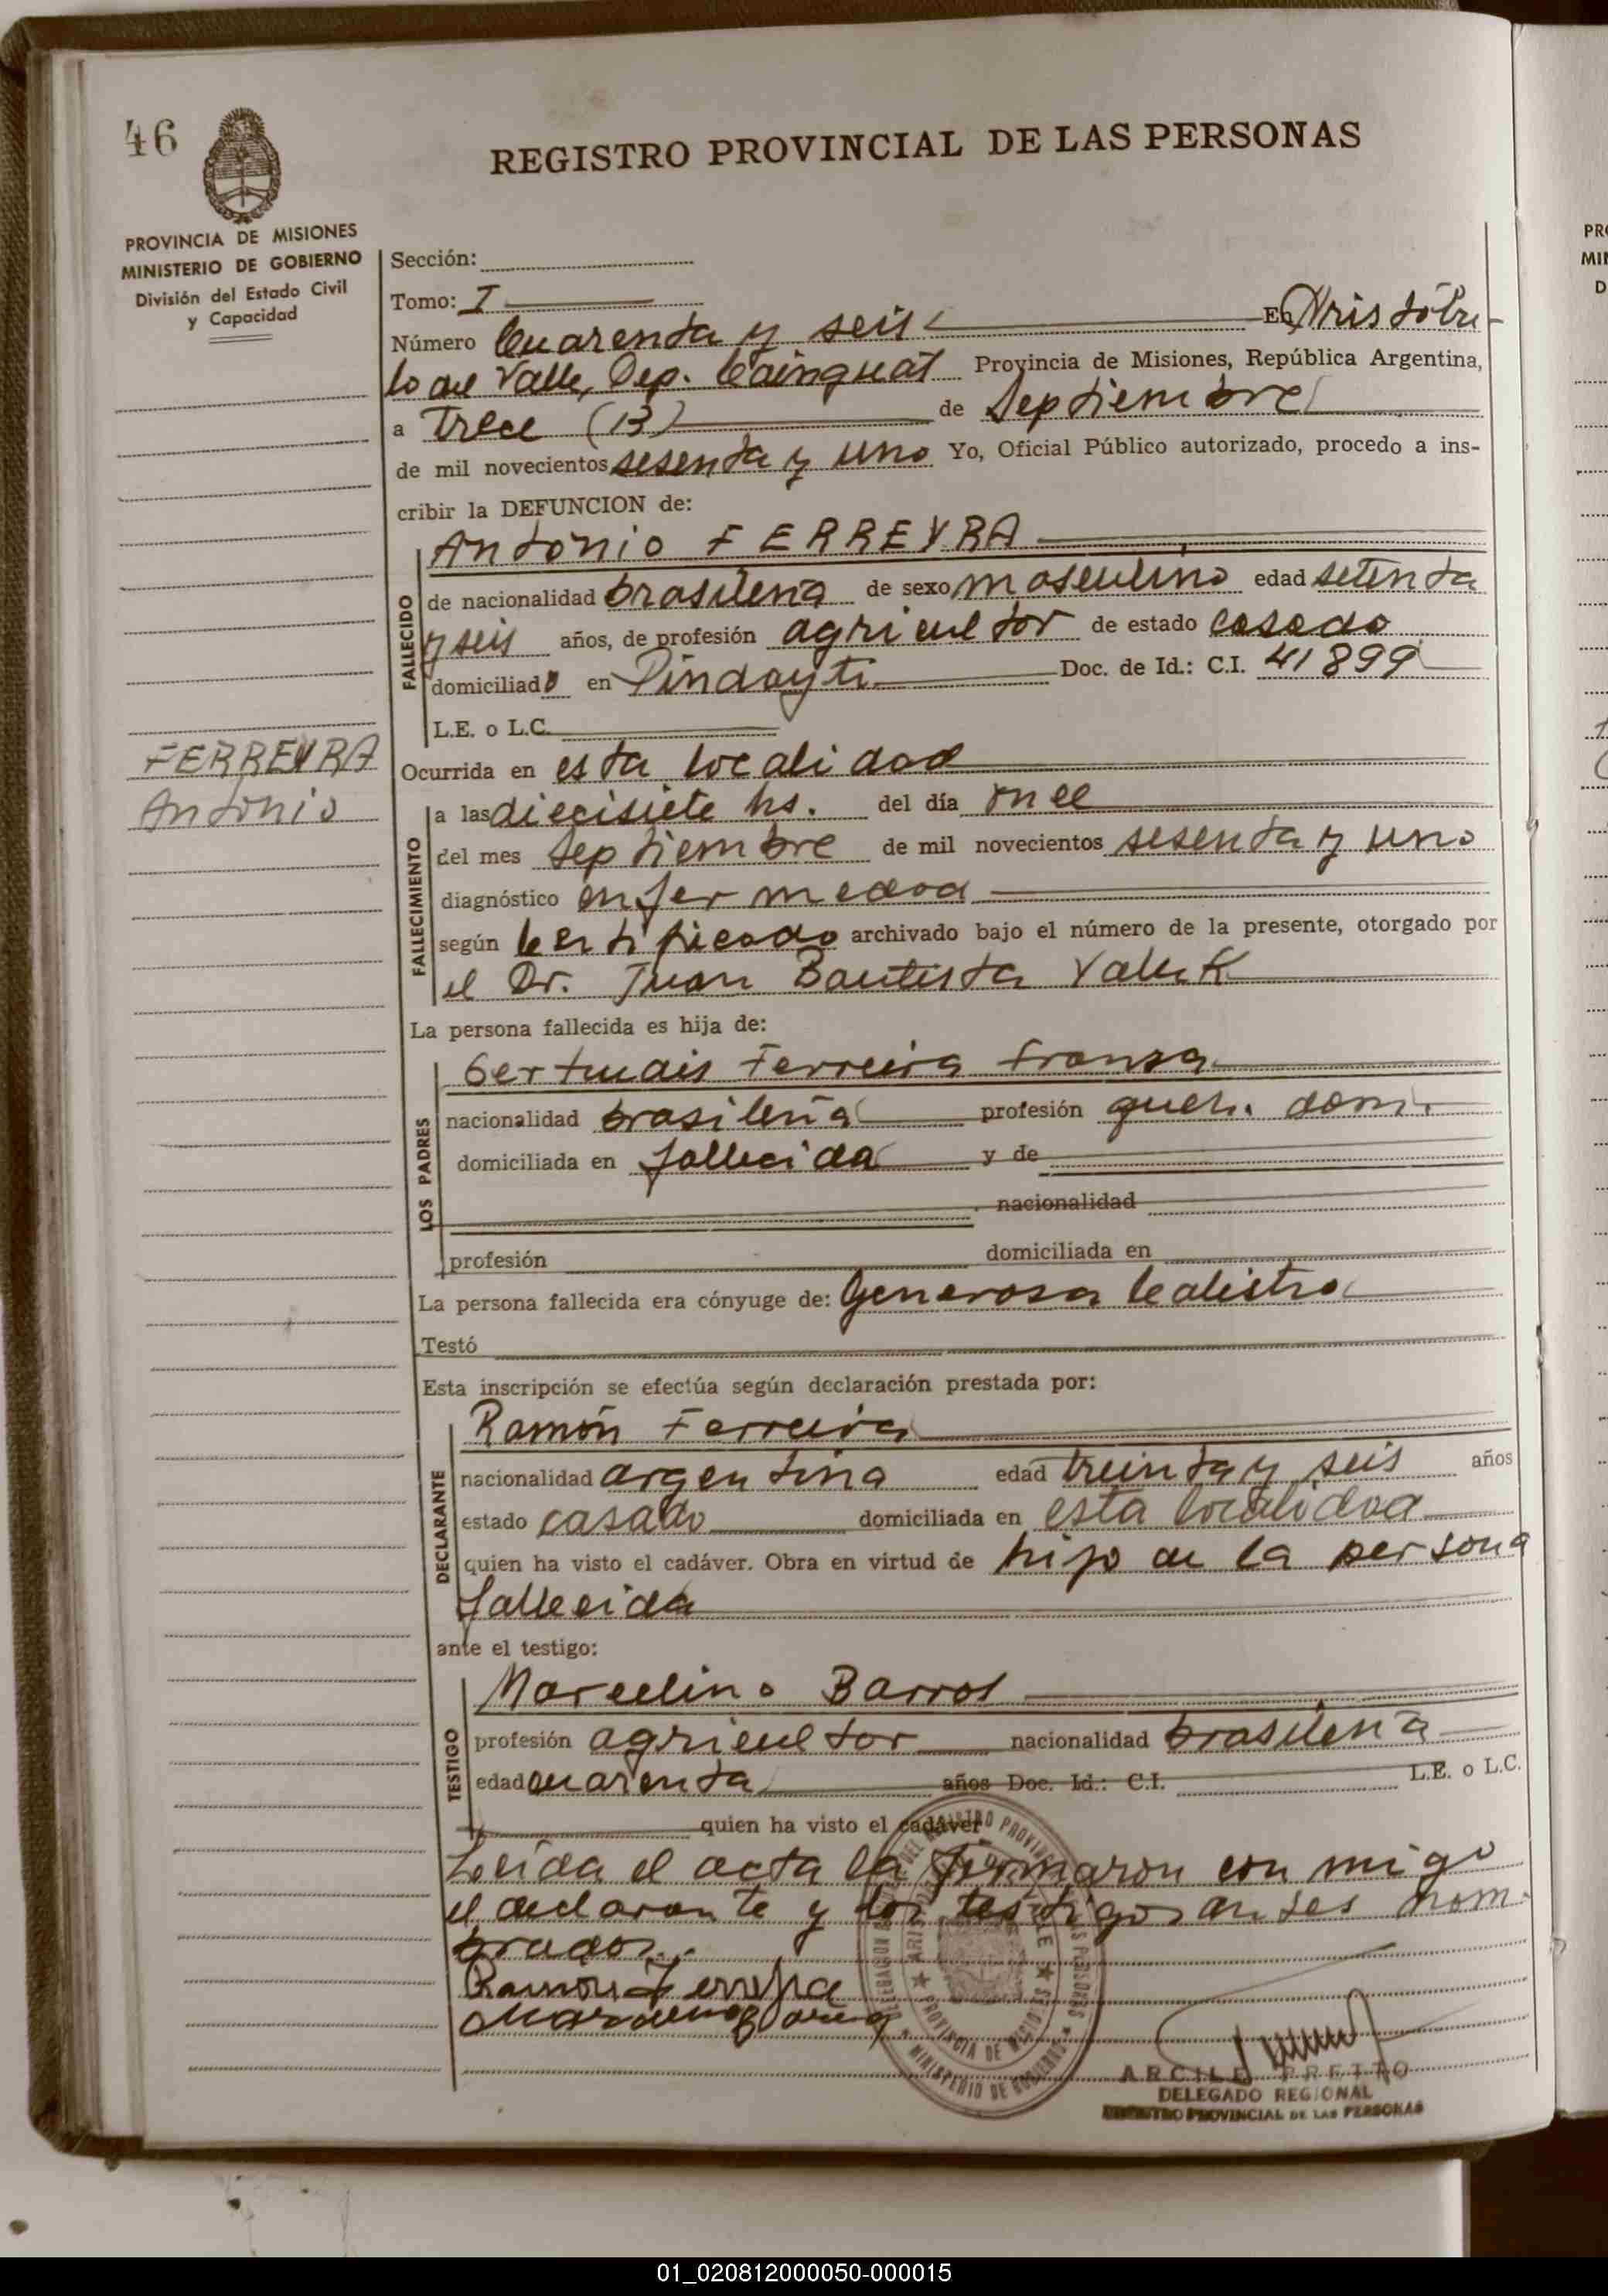 46
REGISTRO PROVINCIAL DE LAS PERSONAS
PROVINCIA DE MISIONES
MINISTERIO DE GOBIERNO
División del Estado Civil
y Capacidad
Sección:
Tomo: I
Número Cuarenta y seis En Aristóbu-
lo del Valle, Dep. Cainguás Provincia de Misiones, República Argentina,
a Trece (13) de Septiembre
de mil novecientos sesenta y uno Yo, Oficial Público autorizado, procedo a ins-
cribir la DEFUNCION de:
FALLECIDO
Antonio FERREYRA
de nacionalidad brasileña de sexo masculino edad setenta
y seis años, de profesión agricultor de estado casado
domiciliado en Pindayti Doc. de Id.: C.I. 41899
L.E. o L.C.
FERREYRA
Antonio
Ocurrida en esta localidad
FALLECIMIENTO
a las diecisiete hs. del día once
del mes septiembre de mil novecientos sesenta y uno
diagnóstico enfermedad
según certificado archivado bajo el número de la presente, otorgado por
el Dr. Juan Bautista
La persona fallecida es hija de:
LOS PADRES
Ferreira Fransa
nacionalidad brasileña profesión queh. dom.
domiciliada en fallecida y de
nacionalidad
profesión domiciliada en
La persona fallecida era cónyuge de: Generosa Calistro
Testó
Esta inscripción se efectúa según declaración prestada por:
DECLARANTE
Ramón Ferreira
nacionalidad argentina edad treinta y seis años
estado casado domiciliada en esta localidad
quien ha visto el cadáver. Obra en virtud de hijo de la persona
fallecida
ante el testigo:
TESTIGO
Marcelino Barros
profesión agricultor nacionalidad brasileña
edad cuarenta años Doc. Id.: C.I. L.E. o L.C.
quien ha visto el cadáver
Leída el acta la firmaron con migo
el declarante y los testigos antes nom-
brados.
Ramón Ferreira
PROVINCIA DE MISIONES
MINISTERIO DE GOBIERNO
DELEGADO REGIONAL
REGISTRO PROVINCIAL DE LAS PERSONAS
01_020812000050-000015